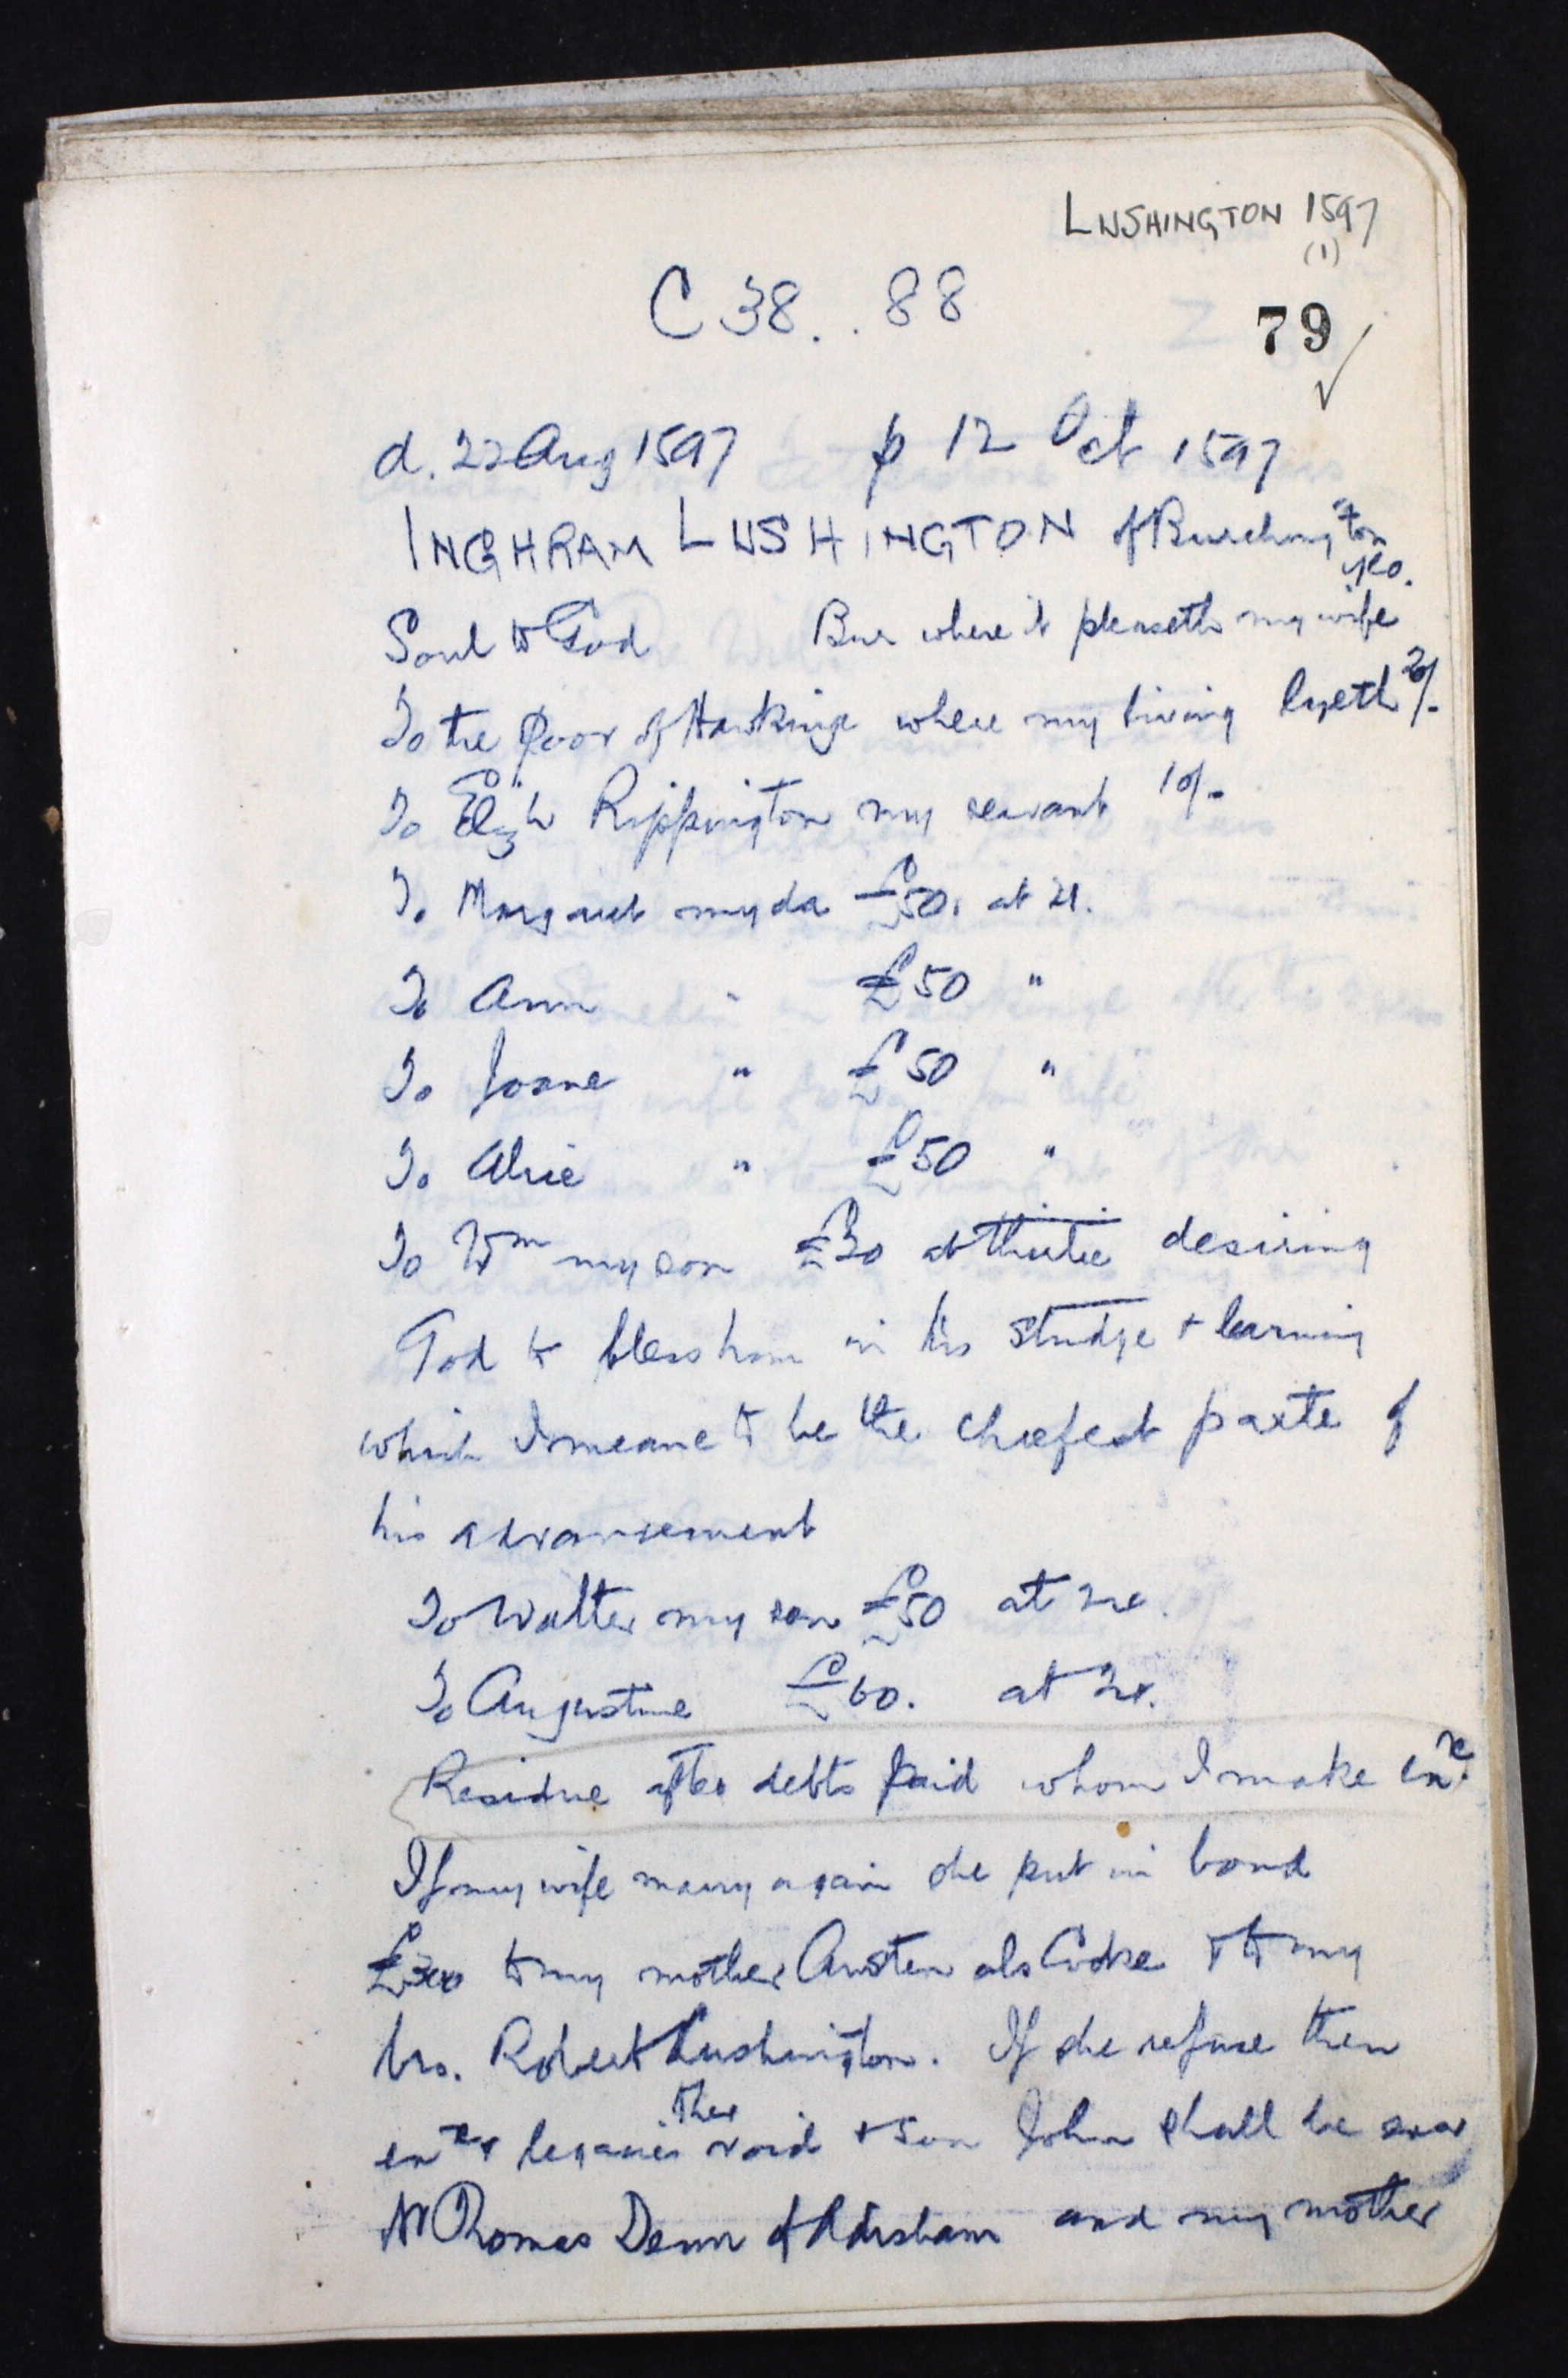 LUSHINGTON 1597
(1)
C 38 . . 88
79
d. 22 Aug 1597 p 12 Oct 1597
INGHRAM LUSHINGTON of Burchington
yeo.
Soul to God Bur where it pleaseth my wife
To the Poor of Hawkinge where my living lyeth 20/-
To Elizth Rippington my servant 10/-
To Margaret my da £50. at 21.
To Ann " £50 "
To Joane " £50 "
To Alice " £50 "
To Wm my son £30 at thirtie desiring
God to bless him in his studye + learning
which I meane to be the cheefest parte of
his advancement
To Walter my son £50 at 24.
To Augustine £60. at 24.
Residue after debts paid whom I make exx.
If my wife marry again she put in bond
£300 to my mother Austen als Cooke + to my
bro. Robert Lushington. If she refuse then
exx + legacies ther void + son John shall be exor
Mr Thomas Denn of Adisham and my mother